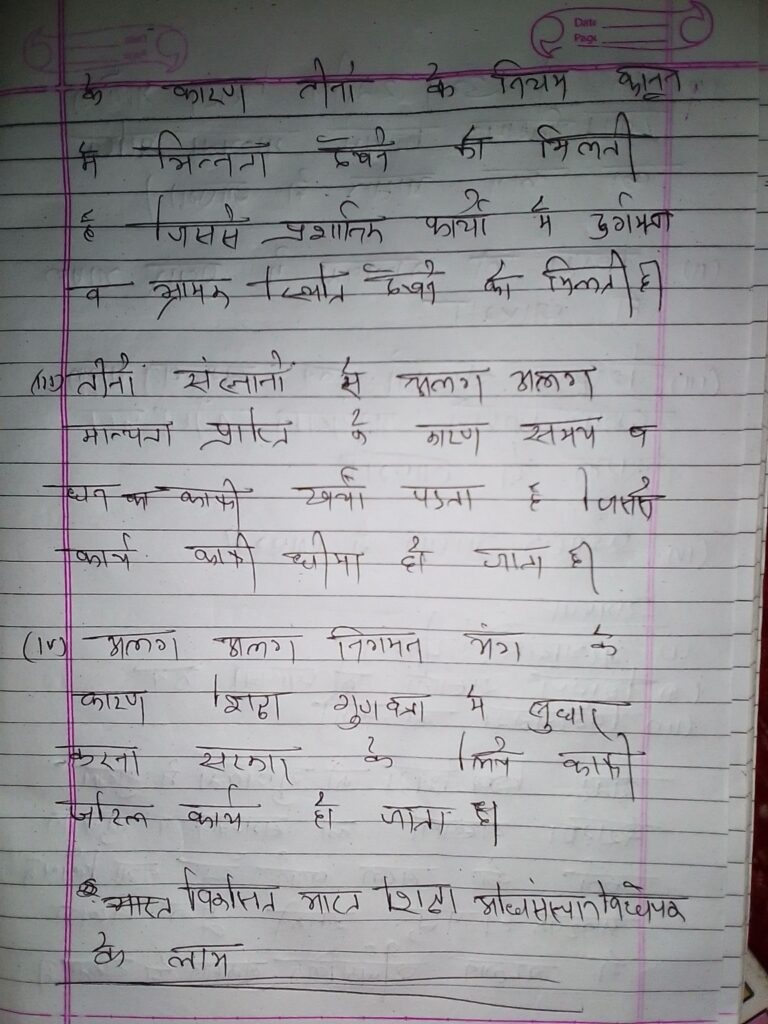 Date
Page
के कारण तीनो के नियम कानून
मे भिन्नता देखने को मिलती
है जिससे प्रशानिक कार्यो मे दुर्गमता
व भ्रामक स्थिति देखने को मिलती है।
(iii) तीनो संस्थानो से अलग अलग
मान्यता प्राप्ति के कारण समय व
धन का काफी खर्चा पडता है जिससे
कार्य काफी धीमा हो जाता है।
(iv) अलग अलग निगमन अंग के
कारण शिक्षा गुणवत्ता मे सुधार
करना सरकार के लिये काफी
जटिल कार्य हो जाता है।
भारत विकसित भारत शिक्षा अधिसंस्थान विधेयक
के लाभ